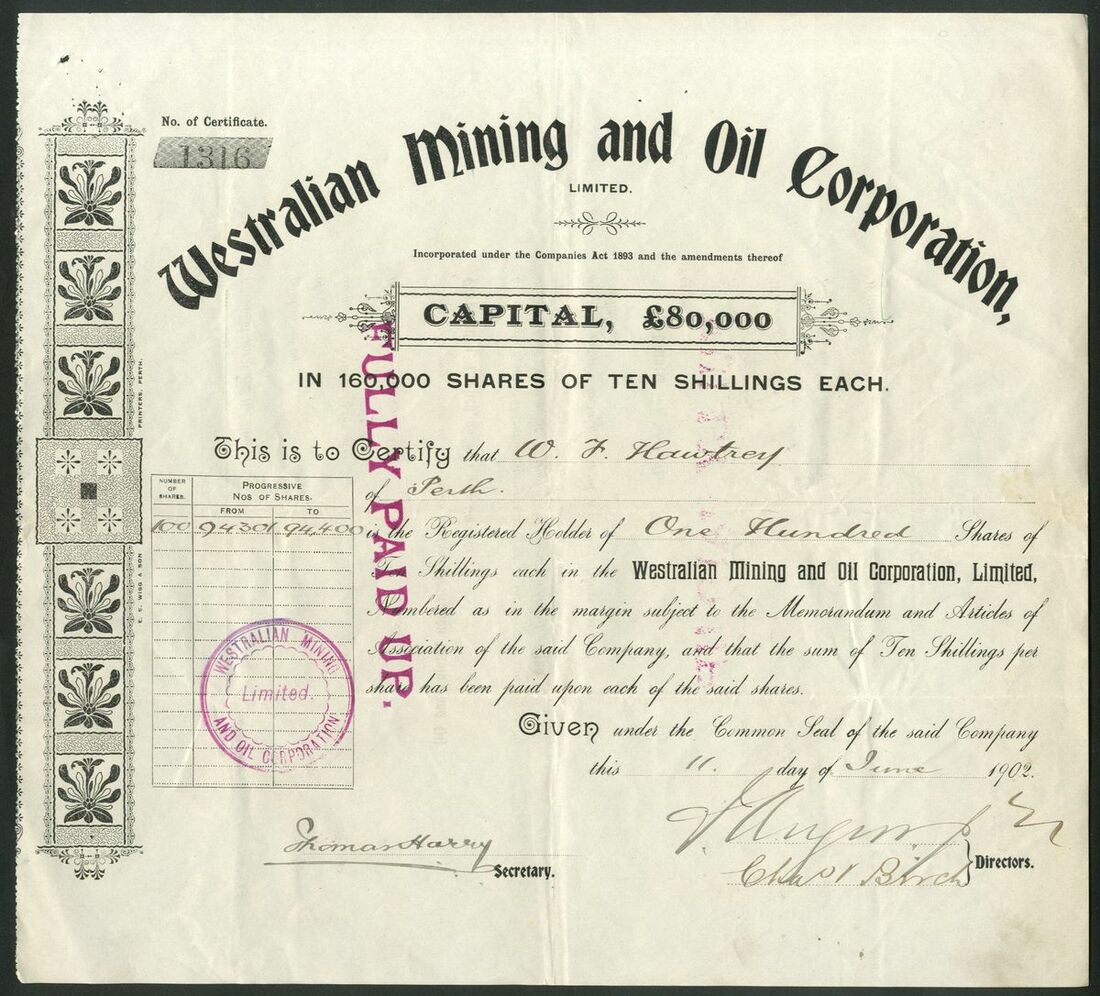 No. of Certificate.
1316
Westralian Mining and Oil Corporation,
LIMITED.
Incorporated under the Companies Act 1893 and the amendments thereof
CAPITAL, £80,000
IN 160,000 SHARES OF TEN SHILLINGS EACH.
This is to Certify that W. F. Hawtrey
of Perth.
NUMBER OF SHARES.
PROGRESSIVE NOS OF SHARES.
FROM TO
100 94301 94,400
is the Registered Holder of One Hundred Shares of
Ten Shillings each in the Westralian Mining and Oil Corporation, Limited,
Numbered as in the margin subject to the Memorandum and Articles of
Association of the said Company, and that the sum of Ten Shillings per
share has been paid upon each of the said shares.
Given under the Common Seal of the said Company
this 11. day of June 1902.
FULLY PAID UP.
WESTRALIAN MINING
Limited.
AND OIL CORPORATION
Thomas Harry
Secretary.
Birch
Directors.
E. S. WIGG & SON
PRINTERS, PERTH.